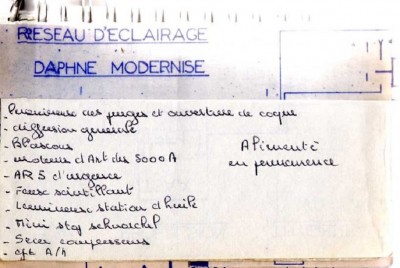 RESEAU D'ECLAIRAGE
DAPHNE MODERNISE
- lumineuse des purges et ouverture de coque
- diffusion generale
- Blascous
- moteurs d'Art des 5000A
- AR 5 d'urgence
- Feux scintillant
- Lumineuse station d'huile
- Mini stop schnorchel
- Secu compresseurs
- cft A/A
Alimenté
en permanence